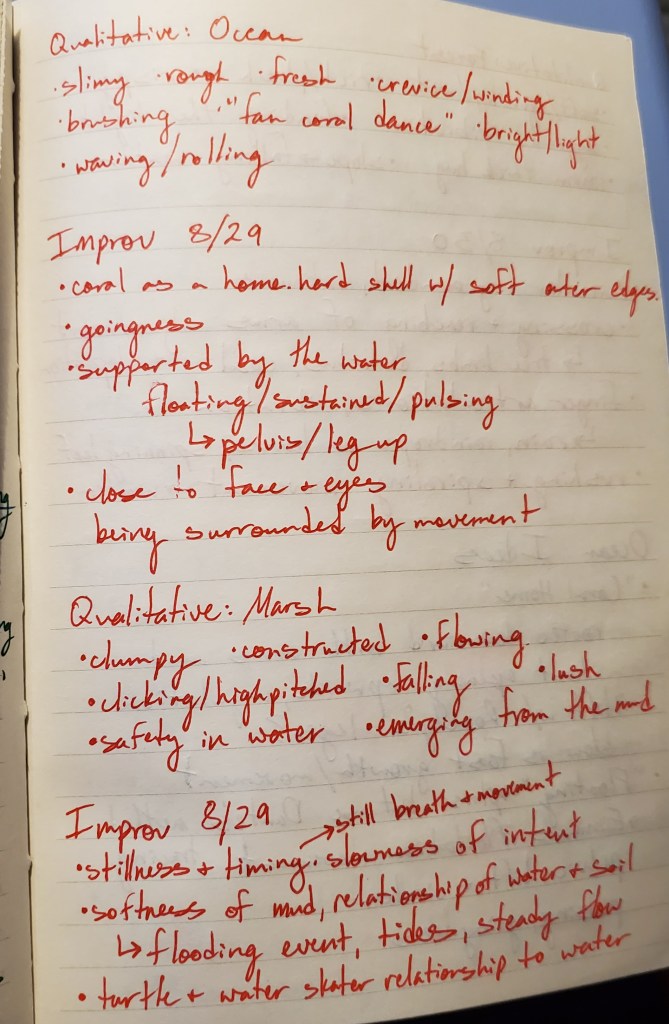 Qualitative: Ocean
·slimy ·rough ·fresh ·crevice/winding
·brushing ·"fan coral dance" ·bright/light
·waving/rolling
Improv 8/29
·coral as a home. hard shell w/ soft outer edges.
·goingness
·supported by the water
floating/sustained/pulsing
↳pelvis/leg up
·close to face + eyes
being surrounded by movement
Qualitative: Marsh
·clumpy ·constructed ·flowing
·clicking/highpitched ·falling ·lush
·safety in water ·emerging from the mud
Improv 8/29 →still breath + movement
·stillness + timing. slowness of intent
·softness of mud, relationship of water + soil
↳flooding event, tides, steady flow
·turtle + water skater relationship to water